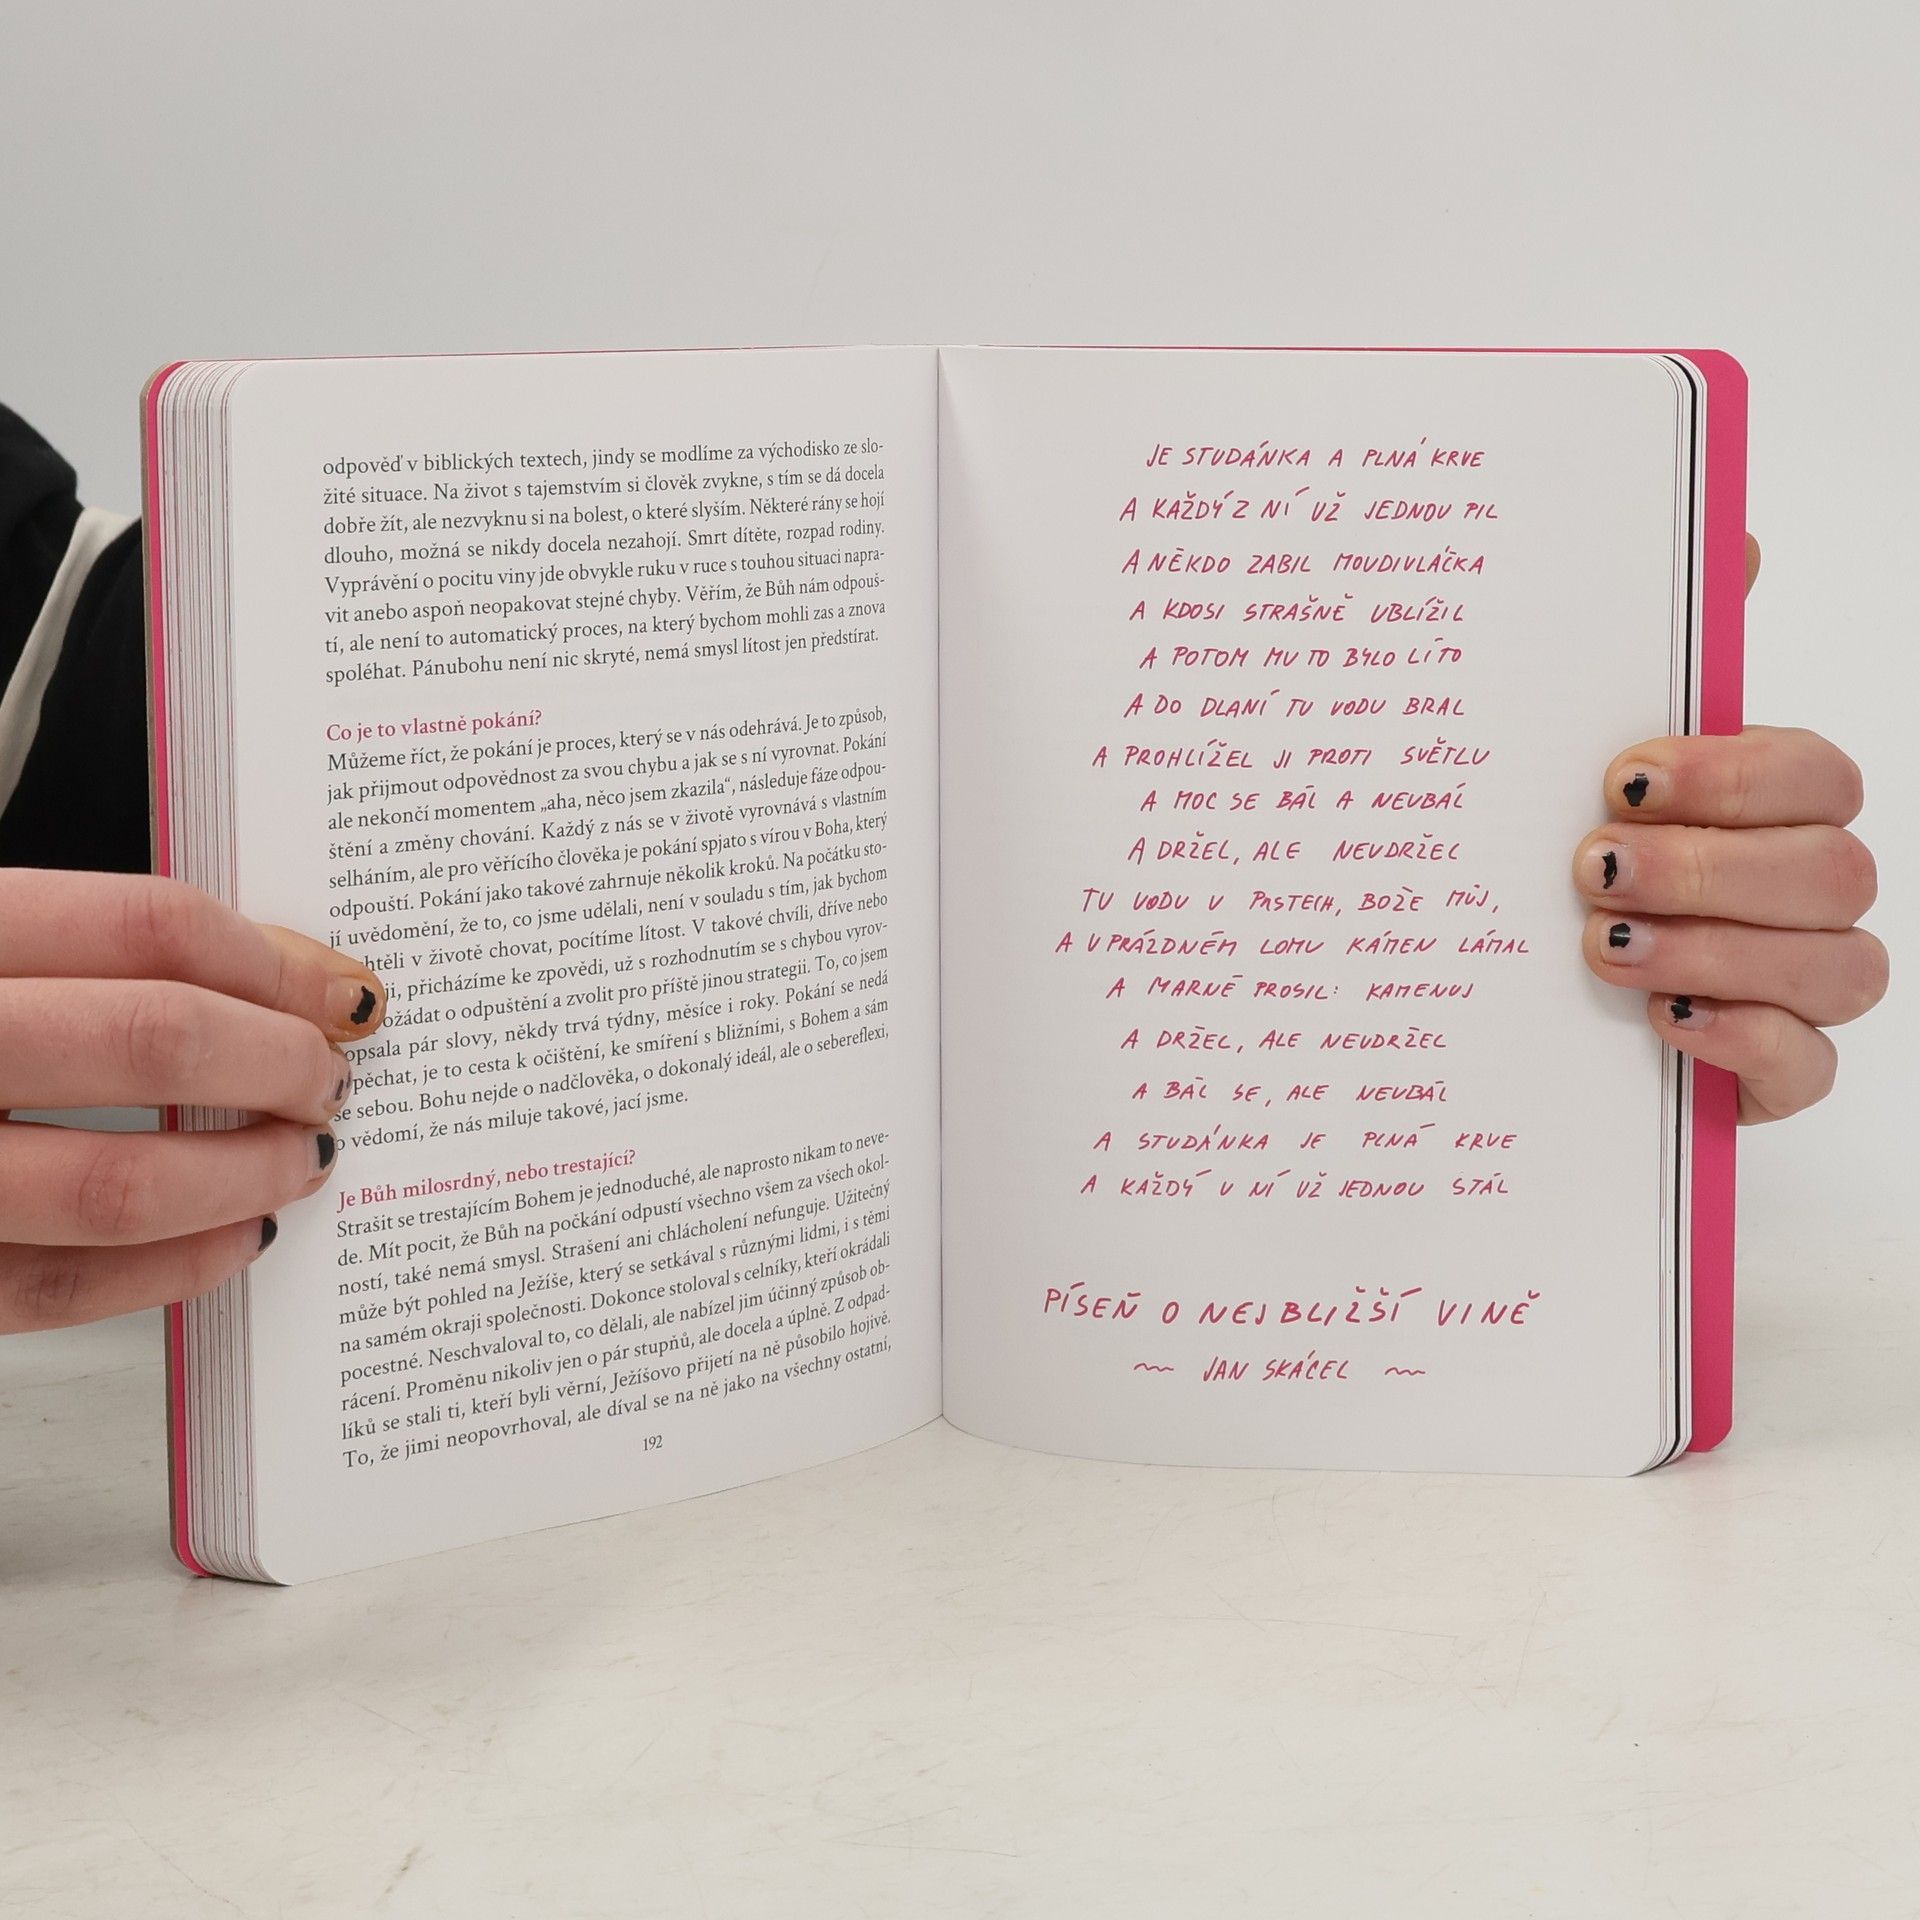 odpověď v biblických textech, jindy se modlíme za východisko ze slo-
žité situace. Na život s tajemstvím si člověk zvykne, s tím se dá docela
dobře žít, ale nezvyknu si na bolest, o které slyším. Některé rány se hojí
dlouho, možná se nikdy docela nezahojí. Smrt dítěte, rozpad rodiny.
Vyprávění o pocitu viny jde obvykle ruku v ruce s touhou situaci napra-
vit anebo aspoň neopakovat stejné chyby. Věřím, že Bůh nám odpouš-
tí, ale není to automatický proces, na který bychom mohli zas a znova
spoléhat. Pánubohu není nic skryté, nemá smysl lítost jen předstírat.
Co je to vlastně pokání?
Můžeme říct, že pokání je proces, který se v nás odehrává. Je to způsob,
jak přijmout odpovědnost za svou chybu a jak se s ní vyrovnat. Pokání
ale nekončí momentem „aha, něco jsem zkazila“, následuje fáze odpou-
štění a změny chování. Každý z nás se v životě vyrovnává s vlastním
selháním, ale pro věřícího člověka je pokání spjato s vírou v Boha, který
odpouští. Pokání jako takové zahrnuje několik kroků. Na počátku sto-
jí uvědomění, že to, co jsme udělali, není v souladu s tím, jak bychom
chtěli v životě chovat, pocítíme lítost. V takové chvíli, dříve nebo
ji, přicházíme ke zpovědi, už s rozhodnutím se s chybou vyrov-
ožádat o odpuštění a zvolit pro příště jinou strategii. To, co jsem
opsala pár slovy, někdy trvá týdny, měsíce i roky. Pokání se nedá
pěchat, je to cesta k očištění, ke smíření s bližními, s Bohem a sám
se sebou. Bohu nejde o nadčlověka, o dokonalý ideál, ale o sebereflexi,
o vědomí, že nás miluje takové, jací jsme.
Je Bůh milosrdný, nebo trestající?
Strašit se trestajícím Bohem je jednoduché, ale naprosto nikam to neve-
de. Mít pocit, že Bůh na počkání odpustí všechno všem za všech okol-
ností, také nemá smysl. Strašení ani chlácholení nefunguje. Užitečný
může být pohled na Ježíše, který se setkával s různými lidmi, i s těmi
na samém okraji společnosti. Dokonce stoloval s celníky, kteří okrádali
pocestné. Neschvaloval to, co dělali, ale nabízel jim účinný způsob ob-
rácení. Proměnu nikoliv jen o pár stupňů, ale docela a úplně. Z odpad-
líků se stali ti, kteří byli věrní, Ježíšovo přijetí na ně působilo hojivě.
To, že jimi neopovrhoval, ale díval se na ně jako na všechny ostatní,
192
JE STUDÁNKA A PLNÁ KRVE
A KAŽDÝ Z NÍ UŽ JEDNOU PIL
A NĚKDO ZABIL MOUDIVLÁČKA
A KDOSI STRAŠNĚ UBLÍŽIL
A POTOM MU TO BYLO LÍTO
A DO DLANÍ TU VODU BRAL
A PROHLÍŽEL JI PROTI SVĚTLU
A MOC SE BÁL A NEUBÁL
A DRŽEL, ALE NEUDRŽEL
TU VODU V PRSTECH, BOŽE MŮJ,
A V PRÁZDNÉM LOMU KÁMEN LÁMAL
A MARNĚ PROSIL: KAMENUJ
A DRŽEL, ALE NEUDRŽEL
A BÁL SE, ALE NEUBÁL
A STUDÁNKA JE PLNÁ KRVE
A KAŽDÝ U NÍ UŽ JEDNOU STÁL
PÍSEŇ O NEJBLIŽŠÍ VINĚ
~ JAN SKÁCEL ~